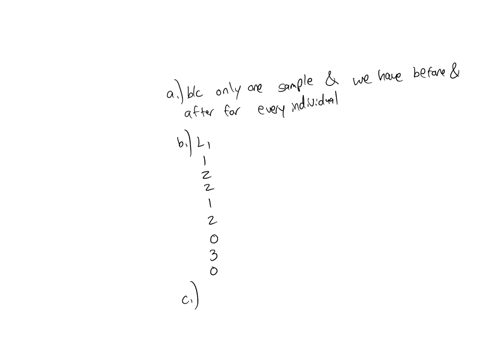 a.) b/c only one sample & we have before &
after for every individual
b.) L1
1
2
2
1
2
0
3
0
c.)